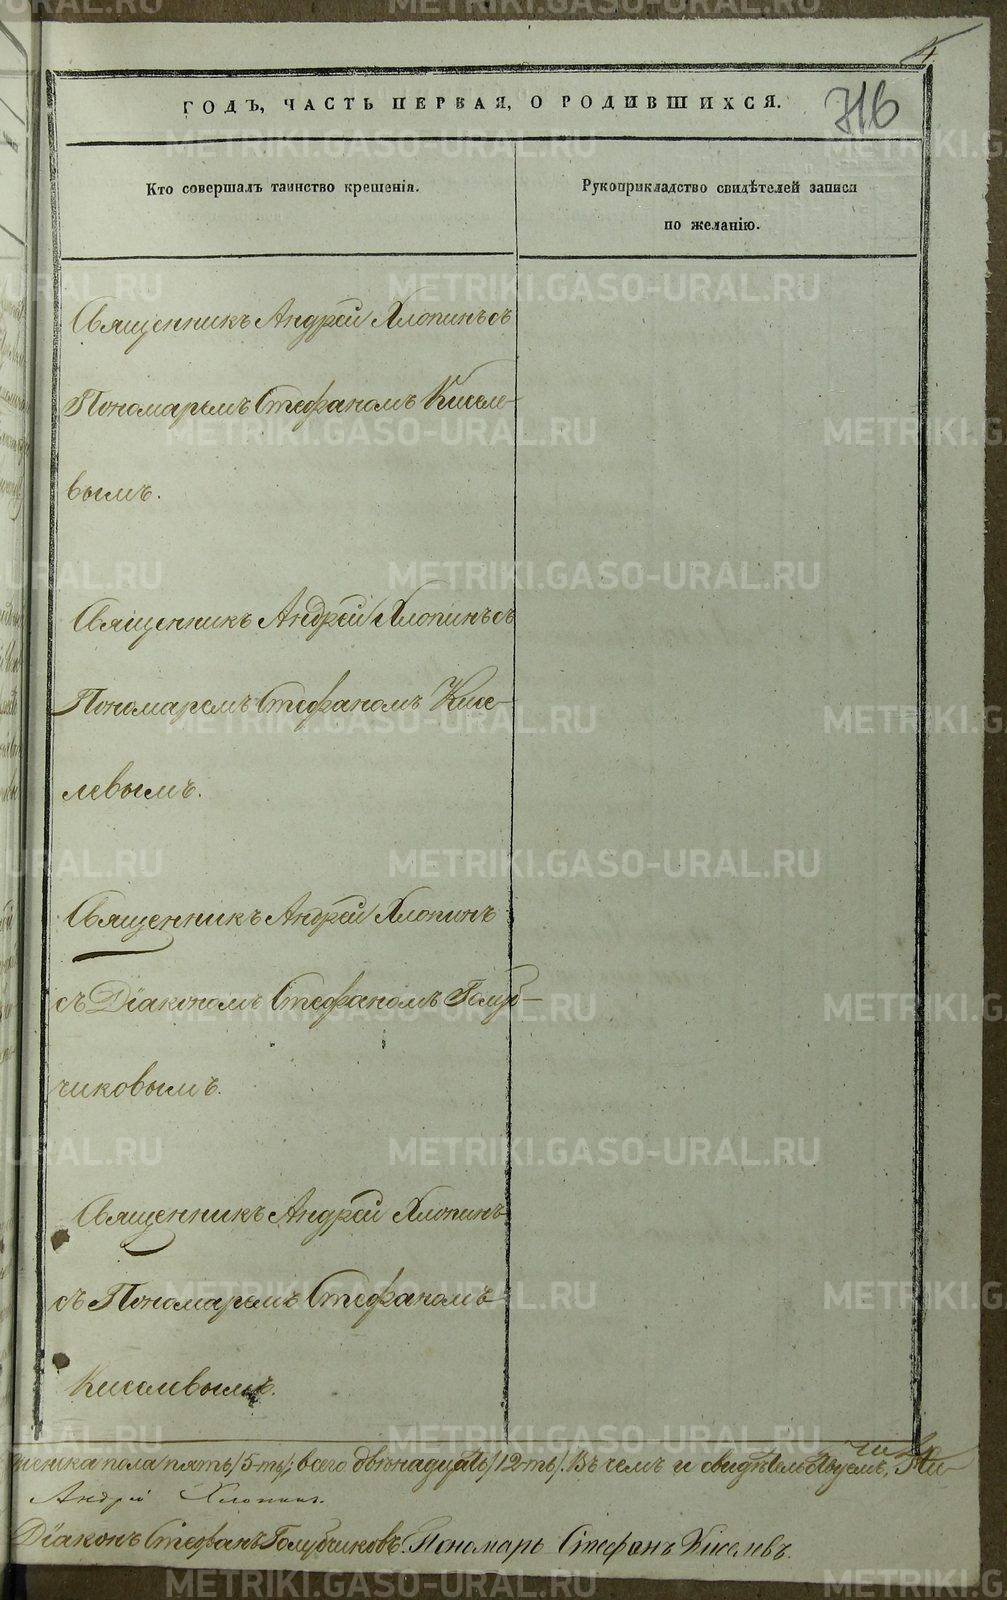 4.
ГОДЪ, ЧАСТЬ ПЕРВАЯ, О РОДИВШИХСЯ.
716
Кто совершалъ таинство крещенія.
Рукоприкладство свидѣтелей записи
по желанію.
Священникъ Андрей Хлопинъ съ
Пономаремъ Стефаномъ Киселе-
вымъ.
Священникъ Андрей Хлопинъ съ
Пономаремъ Стефаномъ Кисе-
левымъ.
Священникъ Андрей Хлопинъ
съ Діакономъ Стефаномъ Голуб-
чиковымъ.
Священникъ Андрей Хлопинъ
съ Пономаремъ Стефаномъ
Киселевымъ.
женска пола пять /5-ть/; всего двѣнадцать /12-ть/. Въ чемъ и свидѣтельствуемъ,
Андрей Хлопинъ.
Діаконъ Стефанъ Голубчиковъ. Пономарь Стефанъ Киселевъ.
METRIKI.GASO-URAL.RU